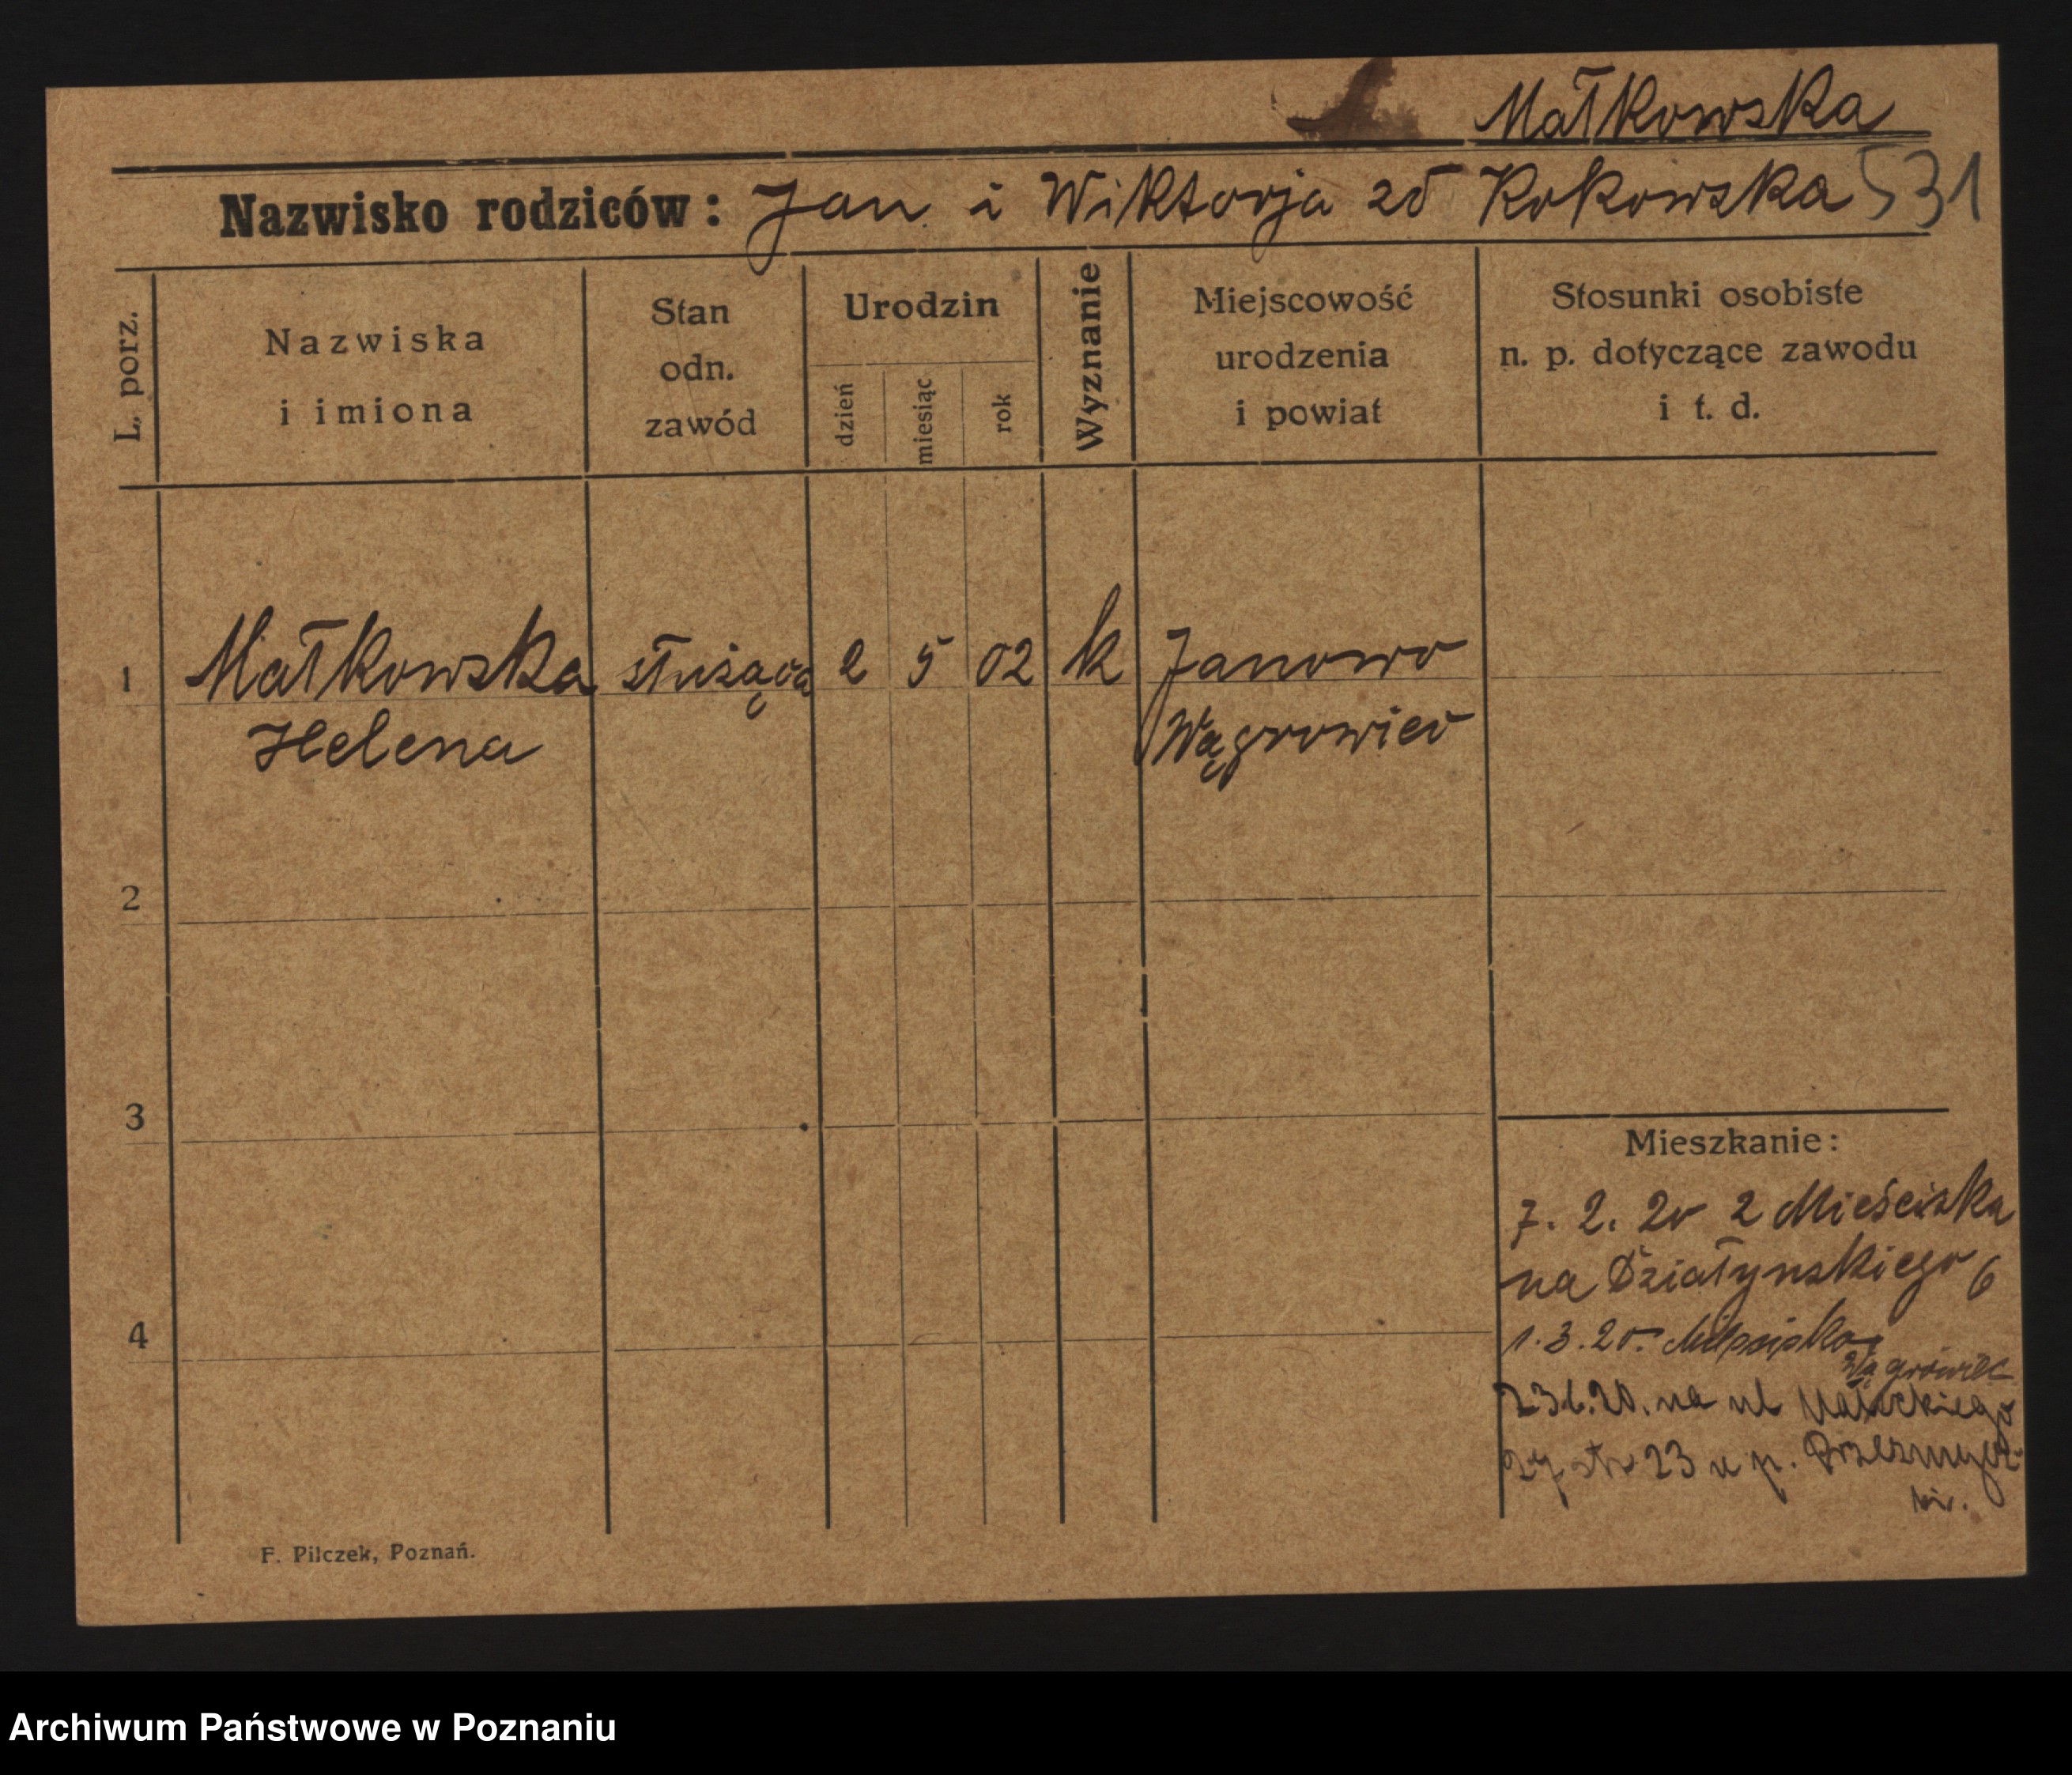 Małkowska
Nazwisko rodziców: Jan i Wiktorja zd Kokowska 531
L. porz.
Nazwiska
i imiona
Stan
odn.
zawód
Urodzin
dzień
miesiąc
rok
Wyznanie
Miejscowość
urodzenia
i powiat
Stosunki osobiste
n. p. dotyczące zawodu
i t. d.
1 Małkowska służąca 2 5 02 k Janowo
Helena Wągrowiec
2
3
4
Mieszkanie:
7. 2. 20 z Mieściska
na Działynskiego 6
1. 3. 20. Mieścisko
Wągrowiec
23 6. 20. na ul
23 u p.
F. Pilczek, Poznań.
Archiwum Państwowe w Poznaniu